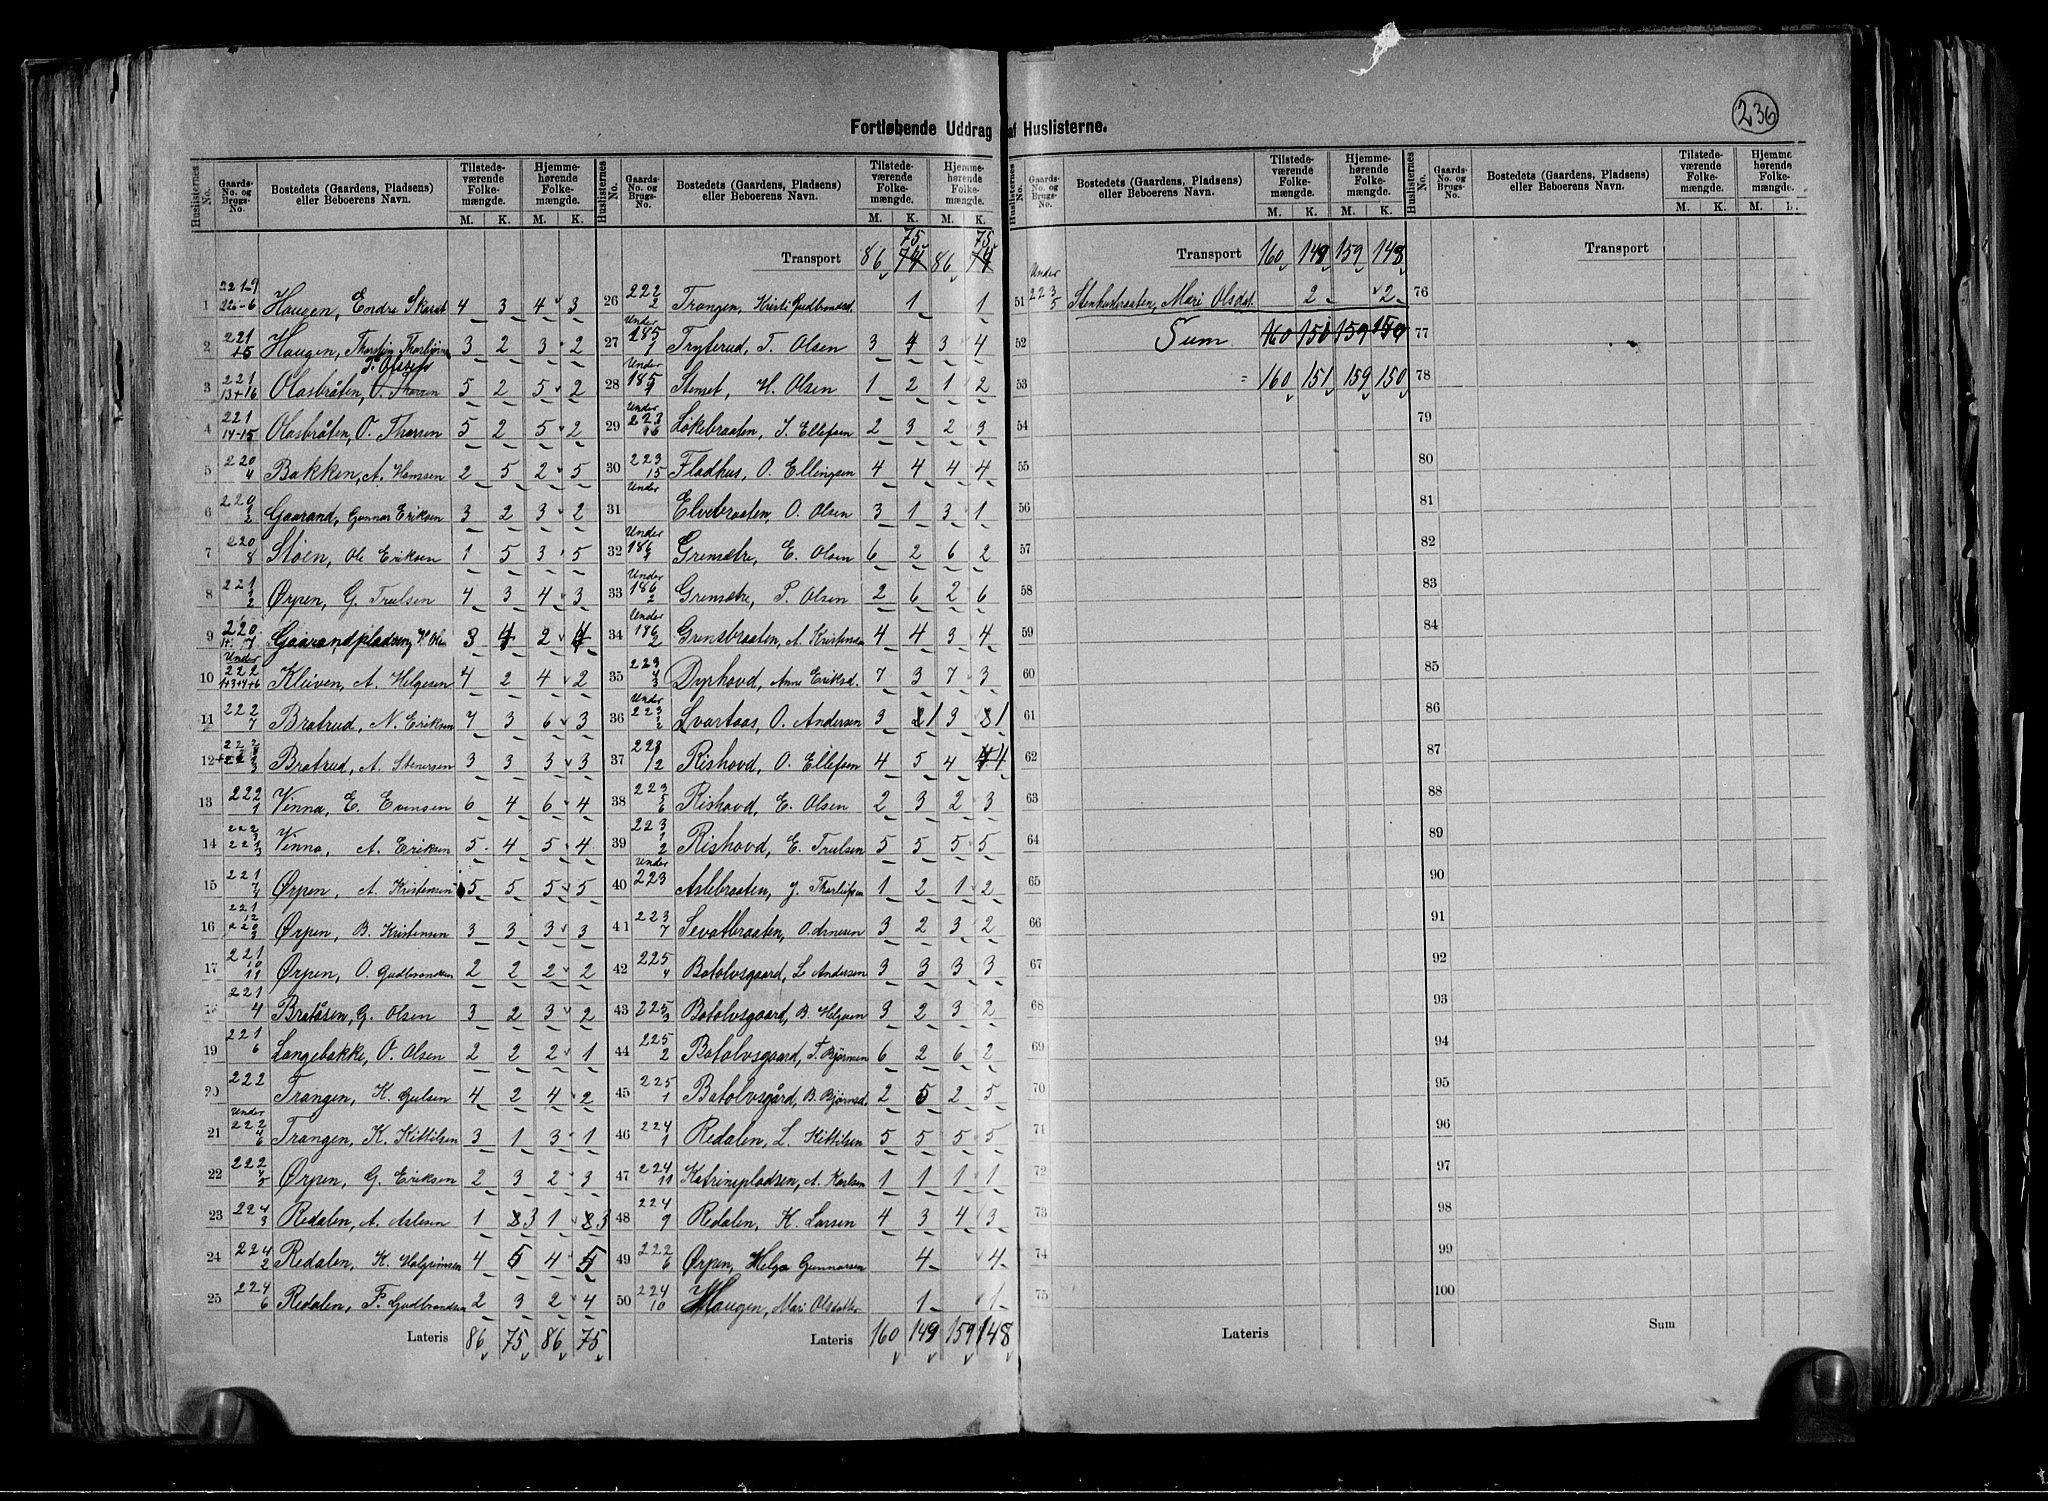 236
Fortløbende Uddrag af Huslisterne.
Huslisternes No. Gaards-No. og Brugs-No. Bostedets (Gaardens, Pladsens) eller Beboerens Navn. Tilstedeværende Folkemængde. M. K. Hjemmehørende Folkemængde. M. K.
1 Haugen, Endre 4 3 4 3
2 221 Haugen, 3 2 3 2
3 221 13+16 Olasbråten, 5 2 5 2
4 221 14-15 Olasbråten, O. Thorsen 5 2 5 2
5 220 4 Bakken, A. Hansen 2 5 2 5
6 220 Gaarand, Gunnar Eriksen 3 2 3 2
7 220 8 Støen, Ole Eriksen 1 5 3 5
8 221 1 2 Ørpen, G. Trulsen 4 3 4 3
9 220 7 Gaarandpladsen, 3 4 2 4
10 Under 222 1+3+4+6 Kleven, A. Helgesen 4 2 4 2
11 222 7 Bratrud, N. Eriksen 7 3 6 3
12 Bratrud, A. Stenersen 3 3 3 3
13 222 1 Vinna, E. Evensen 6 4 6 4
14 Vinna, A. Eriksen 5 4 5 4
15 221 Ørpen, A. Kristensen 5 5 5 5
16 221 12 220 3 Ørpen, B. Kristensen 3 3 3 3
17 221 10 11 Ørpen, O. Gudbrandsen 2 2 2 2
221 4 Bratåsen, G. Olsen 3 2 3 2
19 221 6 Langebakke, O. Olsen 2 2 2 1
20 222 Trangen, K. 4 2 4 2
21 Under 222 4 6 Trangen, K. Kittilsen 3 1 3 1
22 222 Ørpen, G. Eriksen 2 3 2 3
23 224 3 Redalen, A. Aslesen 1 3 1 3
24 224 2 Redalen, K. Halgrimsen 4 5 4 5
25 224 6 Redalen, F. Gudbrandsen 2 3 2 4
Lateris 86 75 86 75
Huslisternes No. Gaards-No. og Brugs-No. Bostedets (Gaardens, Pladsens) eller Beboerens Navn. Tilstedeværende Folkemængde. M. K. Hjemmehørende Folkemængde. M. K.
75 75
Transport 86 74 86 74
26 222 2 Trangen, Kristi Gudbrandsd. 1 1
27 Under 185 1 Tryterud, T. Olsen 3 4 3 4
28 Under 185 Stenset, H. Olsen 1 2 1 2
29 Under 223 Løkebraaten, J. Ellefsen 2 3 2 3
30 223 15 Fladhus, O. Ellingsen 4 4 4 4
31 Under Elvebraaten, O. Olsen 3 1 3 1
32 Under 186 Grensætre, E. Olsen 6 2 6 2
33 Under 186 2 Grensætre, P. Olsen 2 6 2 6
34 Under 186 2 Grensbraaten, A. Kristensen 4 4 3 4
35 223 3 Dyrhovd, Anne Eriksd. 7 3 7 3
36 Under 223 Svartaas, O. Andersen 3 1 3 1
37 223 12 Rishovd, O. Ellefsen 4 5 4 4
38 223 5 6 Rishovd, E. Olsen 2 3 2 3
39 223 1 2 Rishovd, E. Trulsen 5 5 5 5
40 Under 223 Aslebraaten, J. Thorleifsen 1 2 1 2
41 223 7 Sevatbraaten, O. Arnesen 3 2 3 2
42 225 4 Botolvsgaard, L. Andersen 3 3 3 3
43 225 3 Botolvsgaard, B. Helgesen 3 2 3 2
44 225 2 Botolvsgaard, T. Bjørnsen 6 2 6 2
45 225 1 Botolvsgård, B. Bjørnsd. 2 5 2 5
46 224 1 Redalen, L. Kittilsen 5 5 5 5
47 224 11 Katrinepladsen, A. Karlsen 1 1 1 1
48 224 9 Redalen, K. Larsen 4 3 4 3
49 222 6 Ørpen, Helga Gunnarsen 4 4
50 224 10 Haugen, Mari Olsdatter 1 1
Lateris 160 149 159 148
Huslisternes No. Gaards-No. og Brugs-No. Bostedets (Gaardens, Pladsens) eller Beboerens Navn. Tilstedeværende Folkemængde. M. K. Hjemmehørende Folkemængde. M. K.
Transport 160 149 159 148
51 Under 223 5 Stenhusbraaten, Mari Olsdat. 2 2
52 Sum 160 150 159 159
53 = 160 151 159 150
54
55
56
57
58
59
60
61
62
63
64
65
66
67
68
69
70
71
72
73
74
75
Lateris
Huslisternes No. Gaards-No. og Brugs-No. Bostedets (Gaardens, Pladsens) eller Beboerens Navn. Tilstedeværende Folkemængde. M. K. Hjemme hørende Folkemængde. M.
Transport
76
77
78
79
80
81
82
83
84
85
86
87
88
89
90
91
92
93
94
95
96
97
98
99
100
Sum